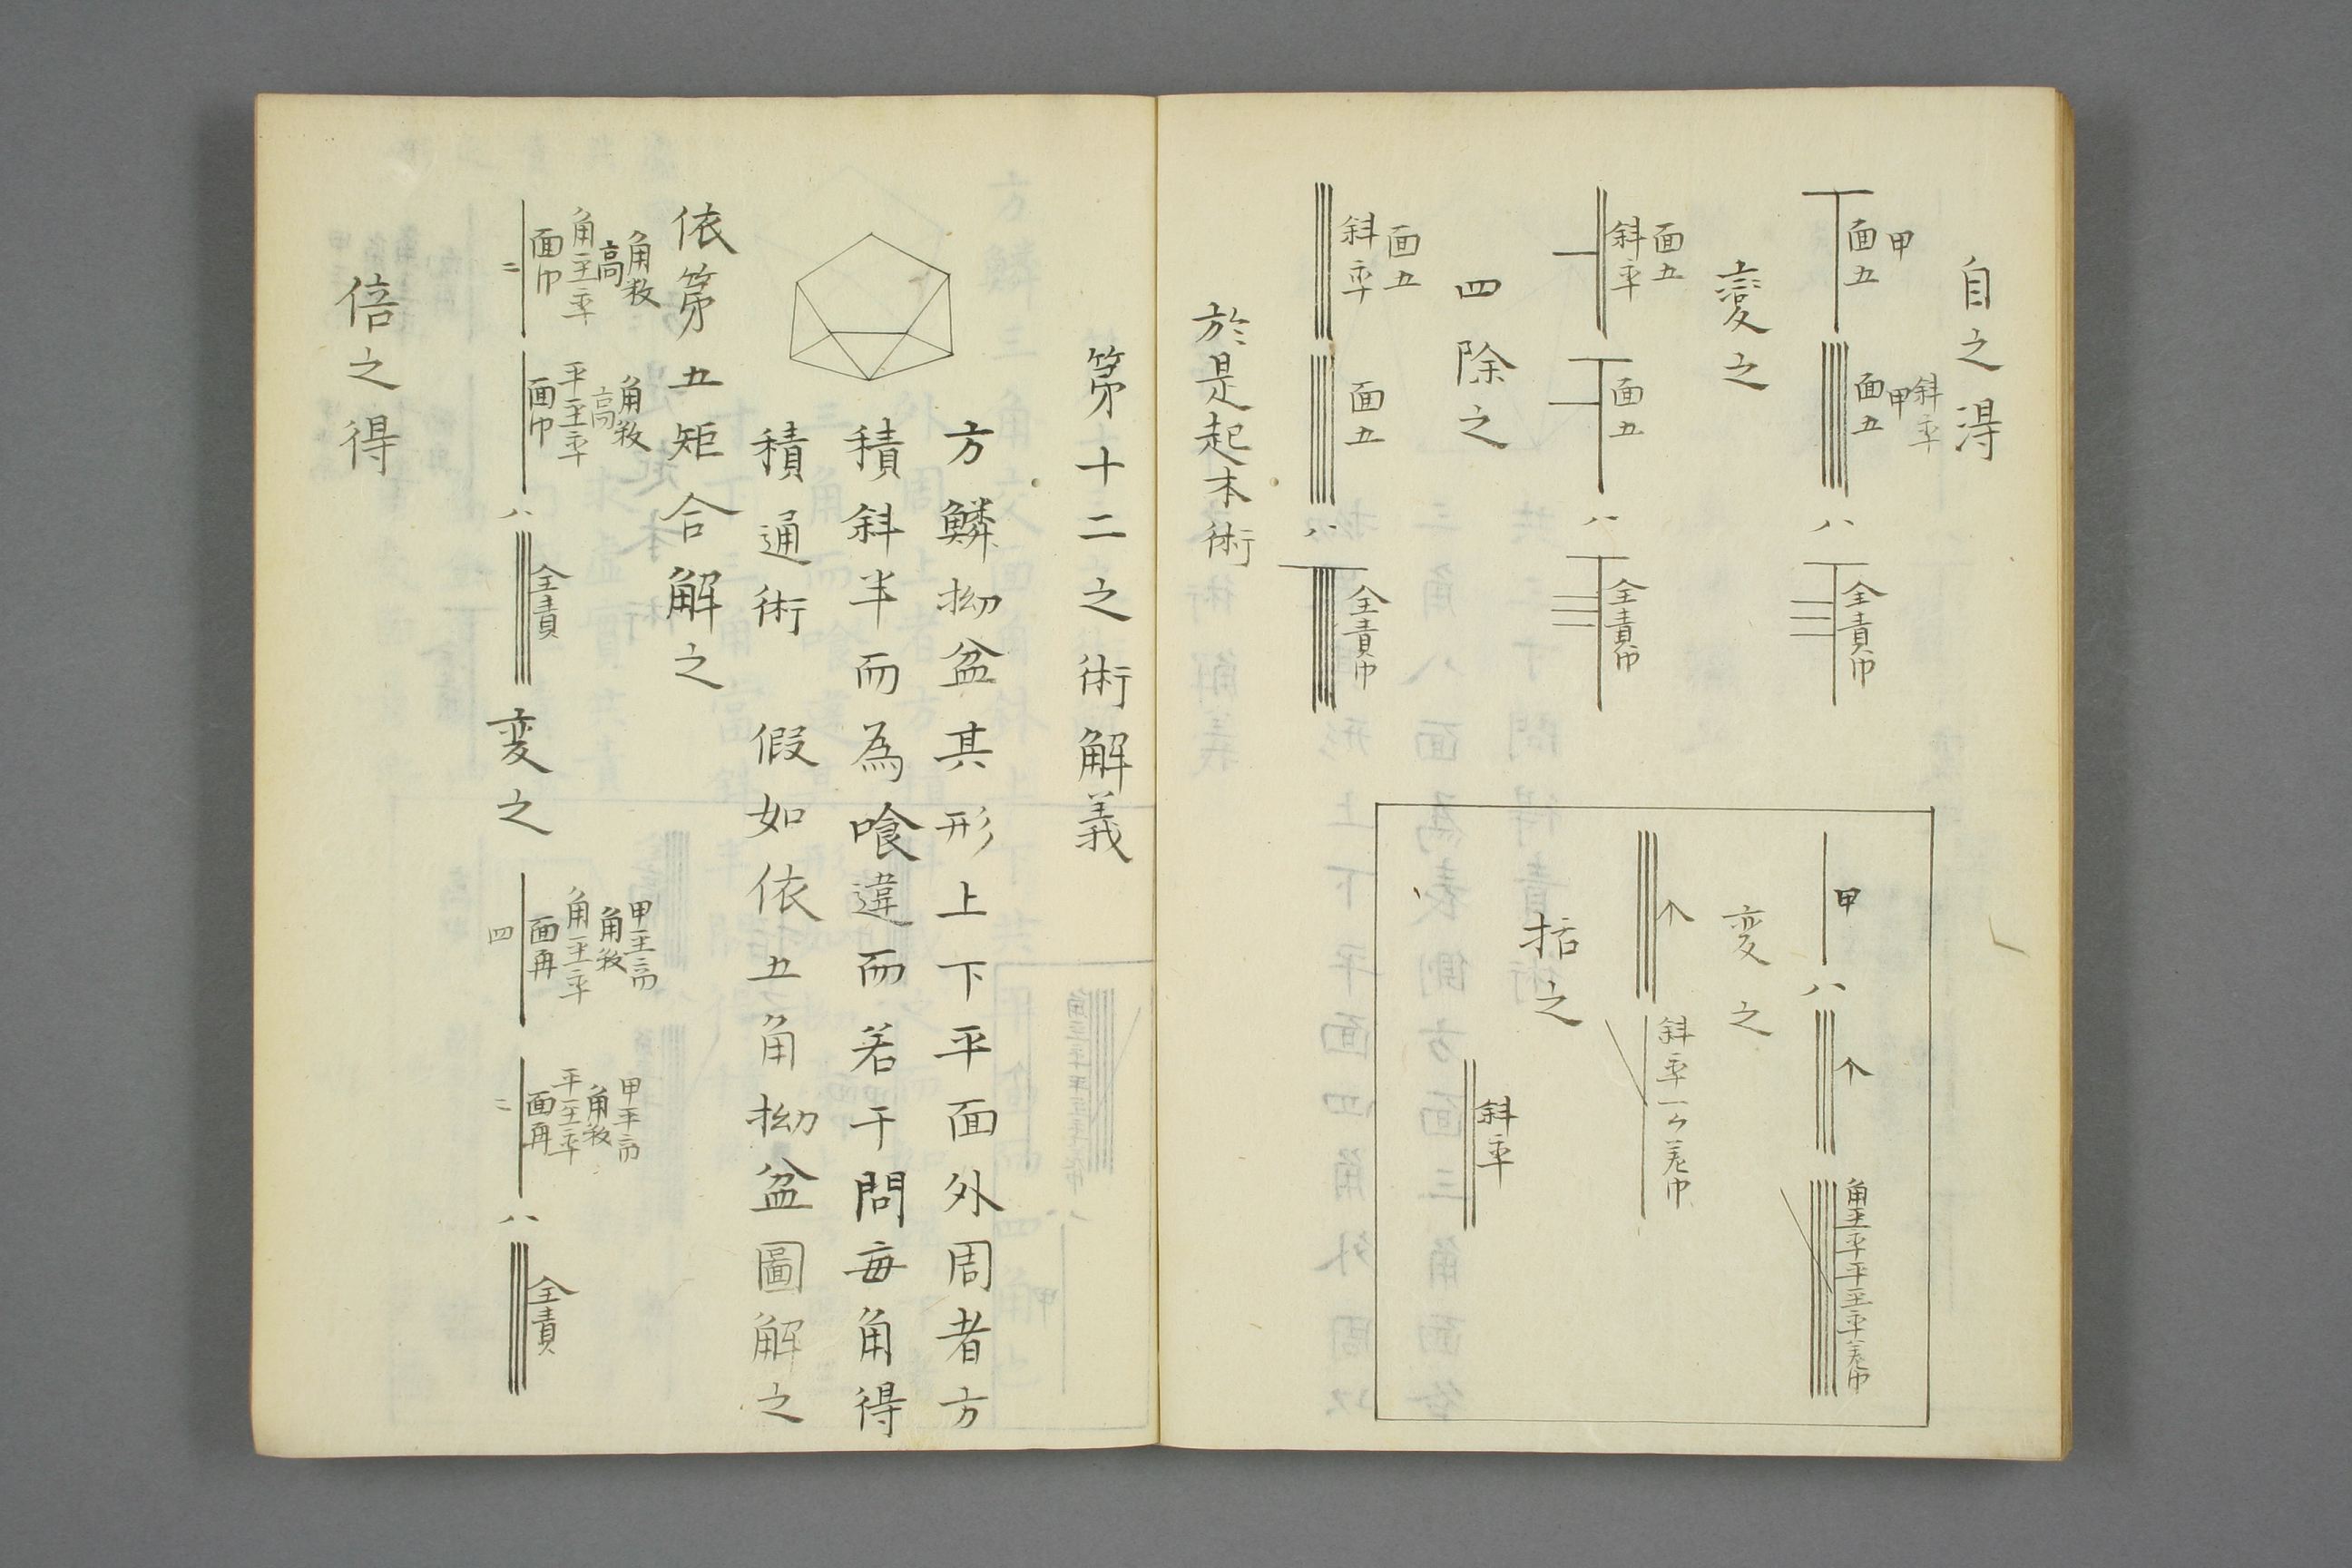 自之得
甲
面五
斜率
甲
面五
八
全責巾
變之
面五
斜率
面五
八
全責巾
四除之
面五
斜率
面五
八
全責巾
於是起本術
甲
八
个
変之
个
斜率一个差巾
括之
斜率
第十二之術解義
方鱗拗盆其形上下平面外周者方
積斜半而為喰違而若干問毎角得
積通術 假如依五角拗盆圖解之
依第五矩合解之
角数
高
角主率
面巾
二
角数
高
平主率
面巾
八
全責
変之
角数
角主率
面再
四
角数
平主率
面再
二
八
全責
倍之得